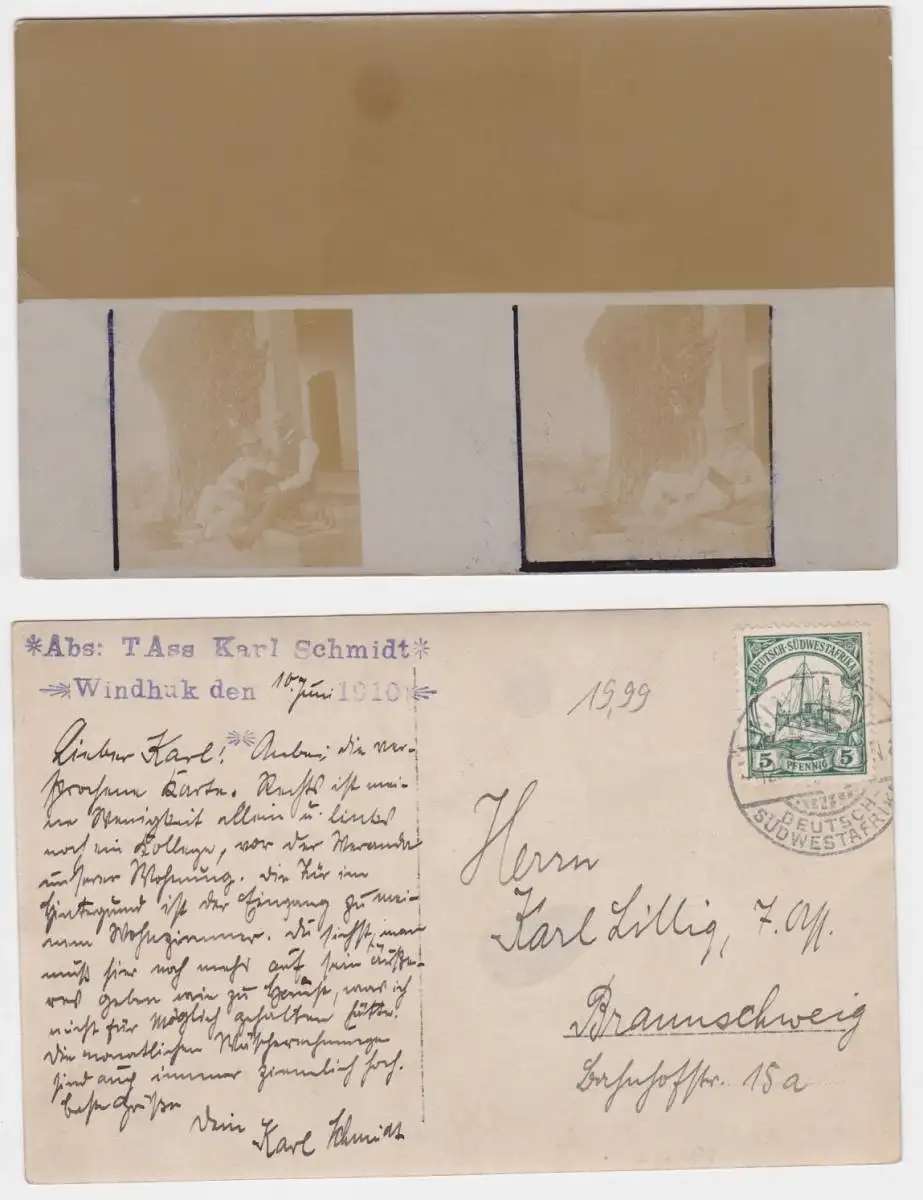 *Abs: TAss Karl Schmidt*
Windhuk den 10. Juni 1910
Lieber Karl! Anbei die ver-
sprochene Karte. Rechts ist mei-
ne Wenigkeit allein u. links
noch ein Kollege, vor der Veranda
unserer Wohnung. Die Tür im
Hintergrund ist der Eingang zu mei-
nem Wohnzimmer. Du siehst, man
muß hier noch mehr auf sein Äuße-
res geben wie zu Hause, was ich
nicht für möglich gehalten hätte.
Die monatlichen Wäscherechnungen
sind auch immer ziemlich hoch.
Beste Grüße
Dein
Karl Schmidt
19,99
DEUTSCH-SÜDWESTAFRIKA
5 PFENNIG 5
DEUTSCH-
SÜDWESTAFRIKA
Herrn
Karl Lillig,
Braunschweig
Bahnhofstr. 15a